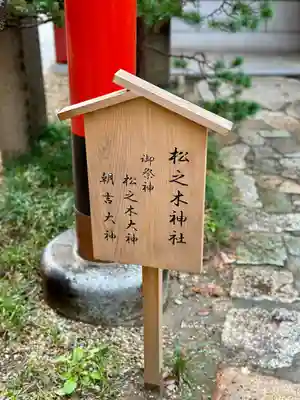 松之木神社
御祭神
松之木大神
朝吉大神